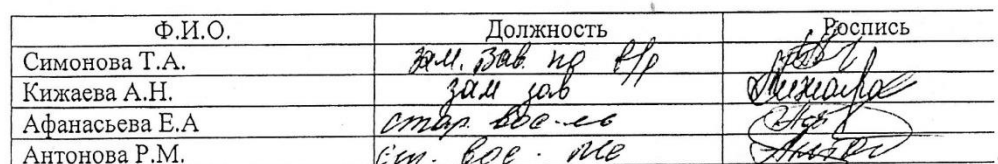 Ф.И.О. Должность Роспись
Симонова Т.А. зам. зав. по в/р
Кижаева А.Н. зам зав
Афанасьева Е.А стар. вос-ль
Антонова Р.М. ст. вос.